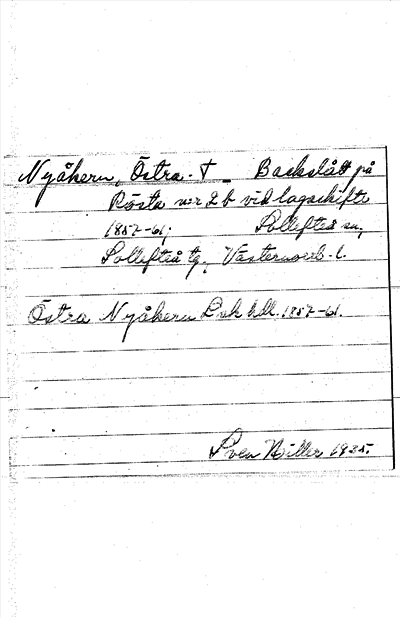 Nyåkern, Östra. † _ Backslått på
Rösta n:r 2 b vid lagaskifte
1857-61; Sollefteå sn,
Sollefteå tg, Västernorrl. l.
Östra Nyåkern L.sk hdl. 1857-61.
Sven Hiller 1935.